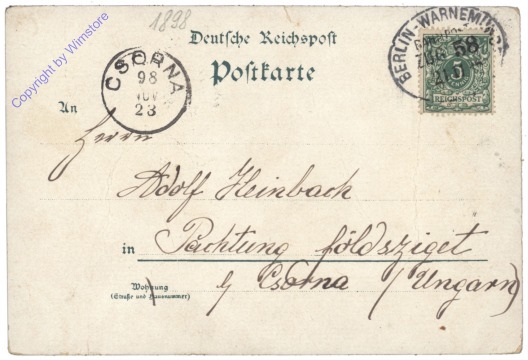 Copyright by Wimstore
1898
Deutsche Reichspost
Postkarte
CSORNA
98
23
BERLIN-WARNEMÜNDE
ZUG 58
5
REICHSPOST
An
Herrn
Adolf Heinbach
in Pachtung földsziget
b/ Csorna (Ungarn)
Wohnung
(Straße und Hausnummer)